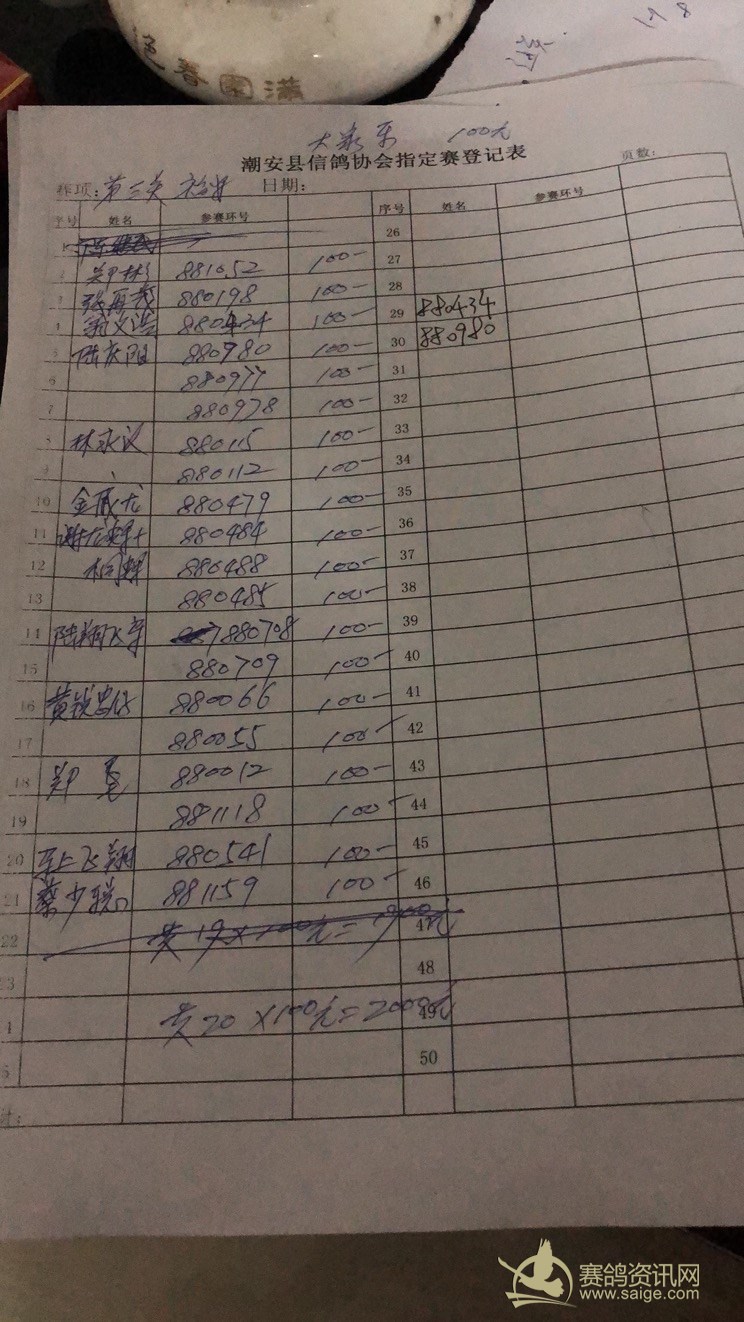 满園春色
大家乐 100元
潮安县信鸽协会指定赛登记表
页数:
项: 第三关 日期:
序号 姓名 参赛环号 序号 姓名 参赛环号
26
郑彬 881052 100- 27
张再茂 880198 100- 28
880434 100- 29 880434
陈庆阳 880980 100- 30 880980
6 880977 100- 31
7 880978 100- 32
8 林永议 880115 100- 33
9 880112 100- 34
10 金威龙 880479 100- 35
11 880484 100- 36
12 880488 100- 37
13 880485 100- 38
14 陆翔飞 880708 100- 39
15 880709 100- 40
16 880066 100- 41
17 880055 100- 42
18 郑 880012 100- 43
19 881118 100- 44
20 飞翔 880541 100- 45
21 蔡少 881159 100- 46
22 共19×100元=1900元 47
23 48
共20×100元=2000元 49
50
计:
赛鸽资讯网
www.saige.com